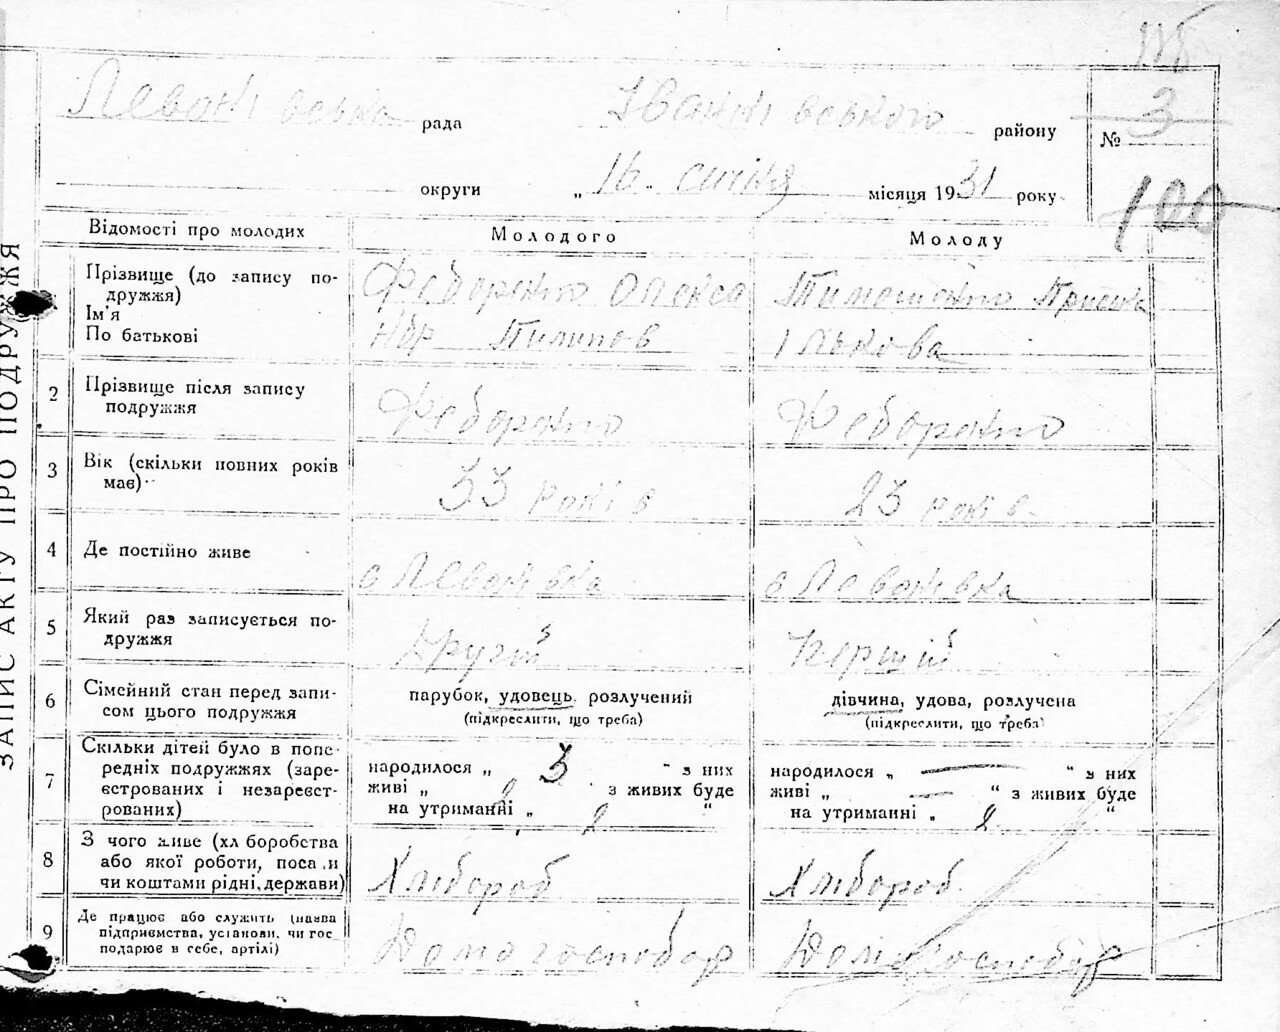 116
Леванівська рада Іванківського району № 3
округи „ 16 " січня місяця 1931 року
100
ЗАПИС АКТУ ПРО ПОДРУЖЖЯ
Відомості про молодих Молодого Молоду
Прізвище (до запису по- Федоренко Олекса Тимошенко Приська
дружжя)
Ім'я
По батькові Пилипов Ількова
2 Прізвище після запису Федоренко Федоренко
подружжя
3 Вік (скільки повних років 33 років 23 років
має)
4 Де постійно живе с Леванівка с Леванівка
5 Який раз записується по- другий перший
дружжя
6 Сімейний стан перед запи- парубок, удовець, розлучений дівчина, удова, розлучена
сом цього подружжя (підкреслити, що треба) (підкреслити, що треба)
7 Скільки дітей було в попе-
редніх подружжях (заре- народилося „ 3 " з них народилося „ — " з них
єстрованих і незареєст- живі „ 2 " з живих буде живі „ — " з живих буде
рованих) на утриманні „ 2 " на утриманні „ 2 "
8 З чого живе (хл боробства Хлібороб Хлібороб
або якої роботи, поса и
чи коштами рідні, держави)
9 Де працює або служить (назва Домогосподар Домогосподар
підприємства, установи, чи гос
подарює в себе, артілі)